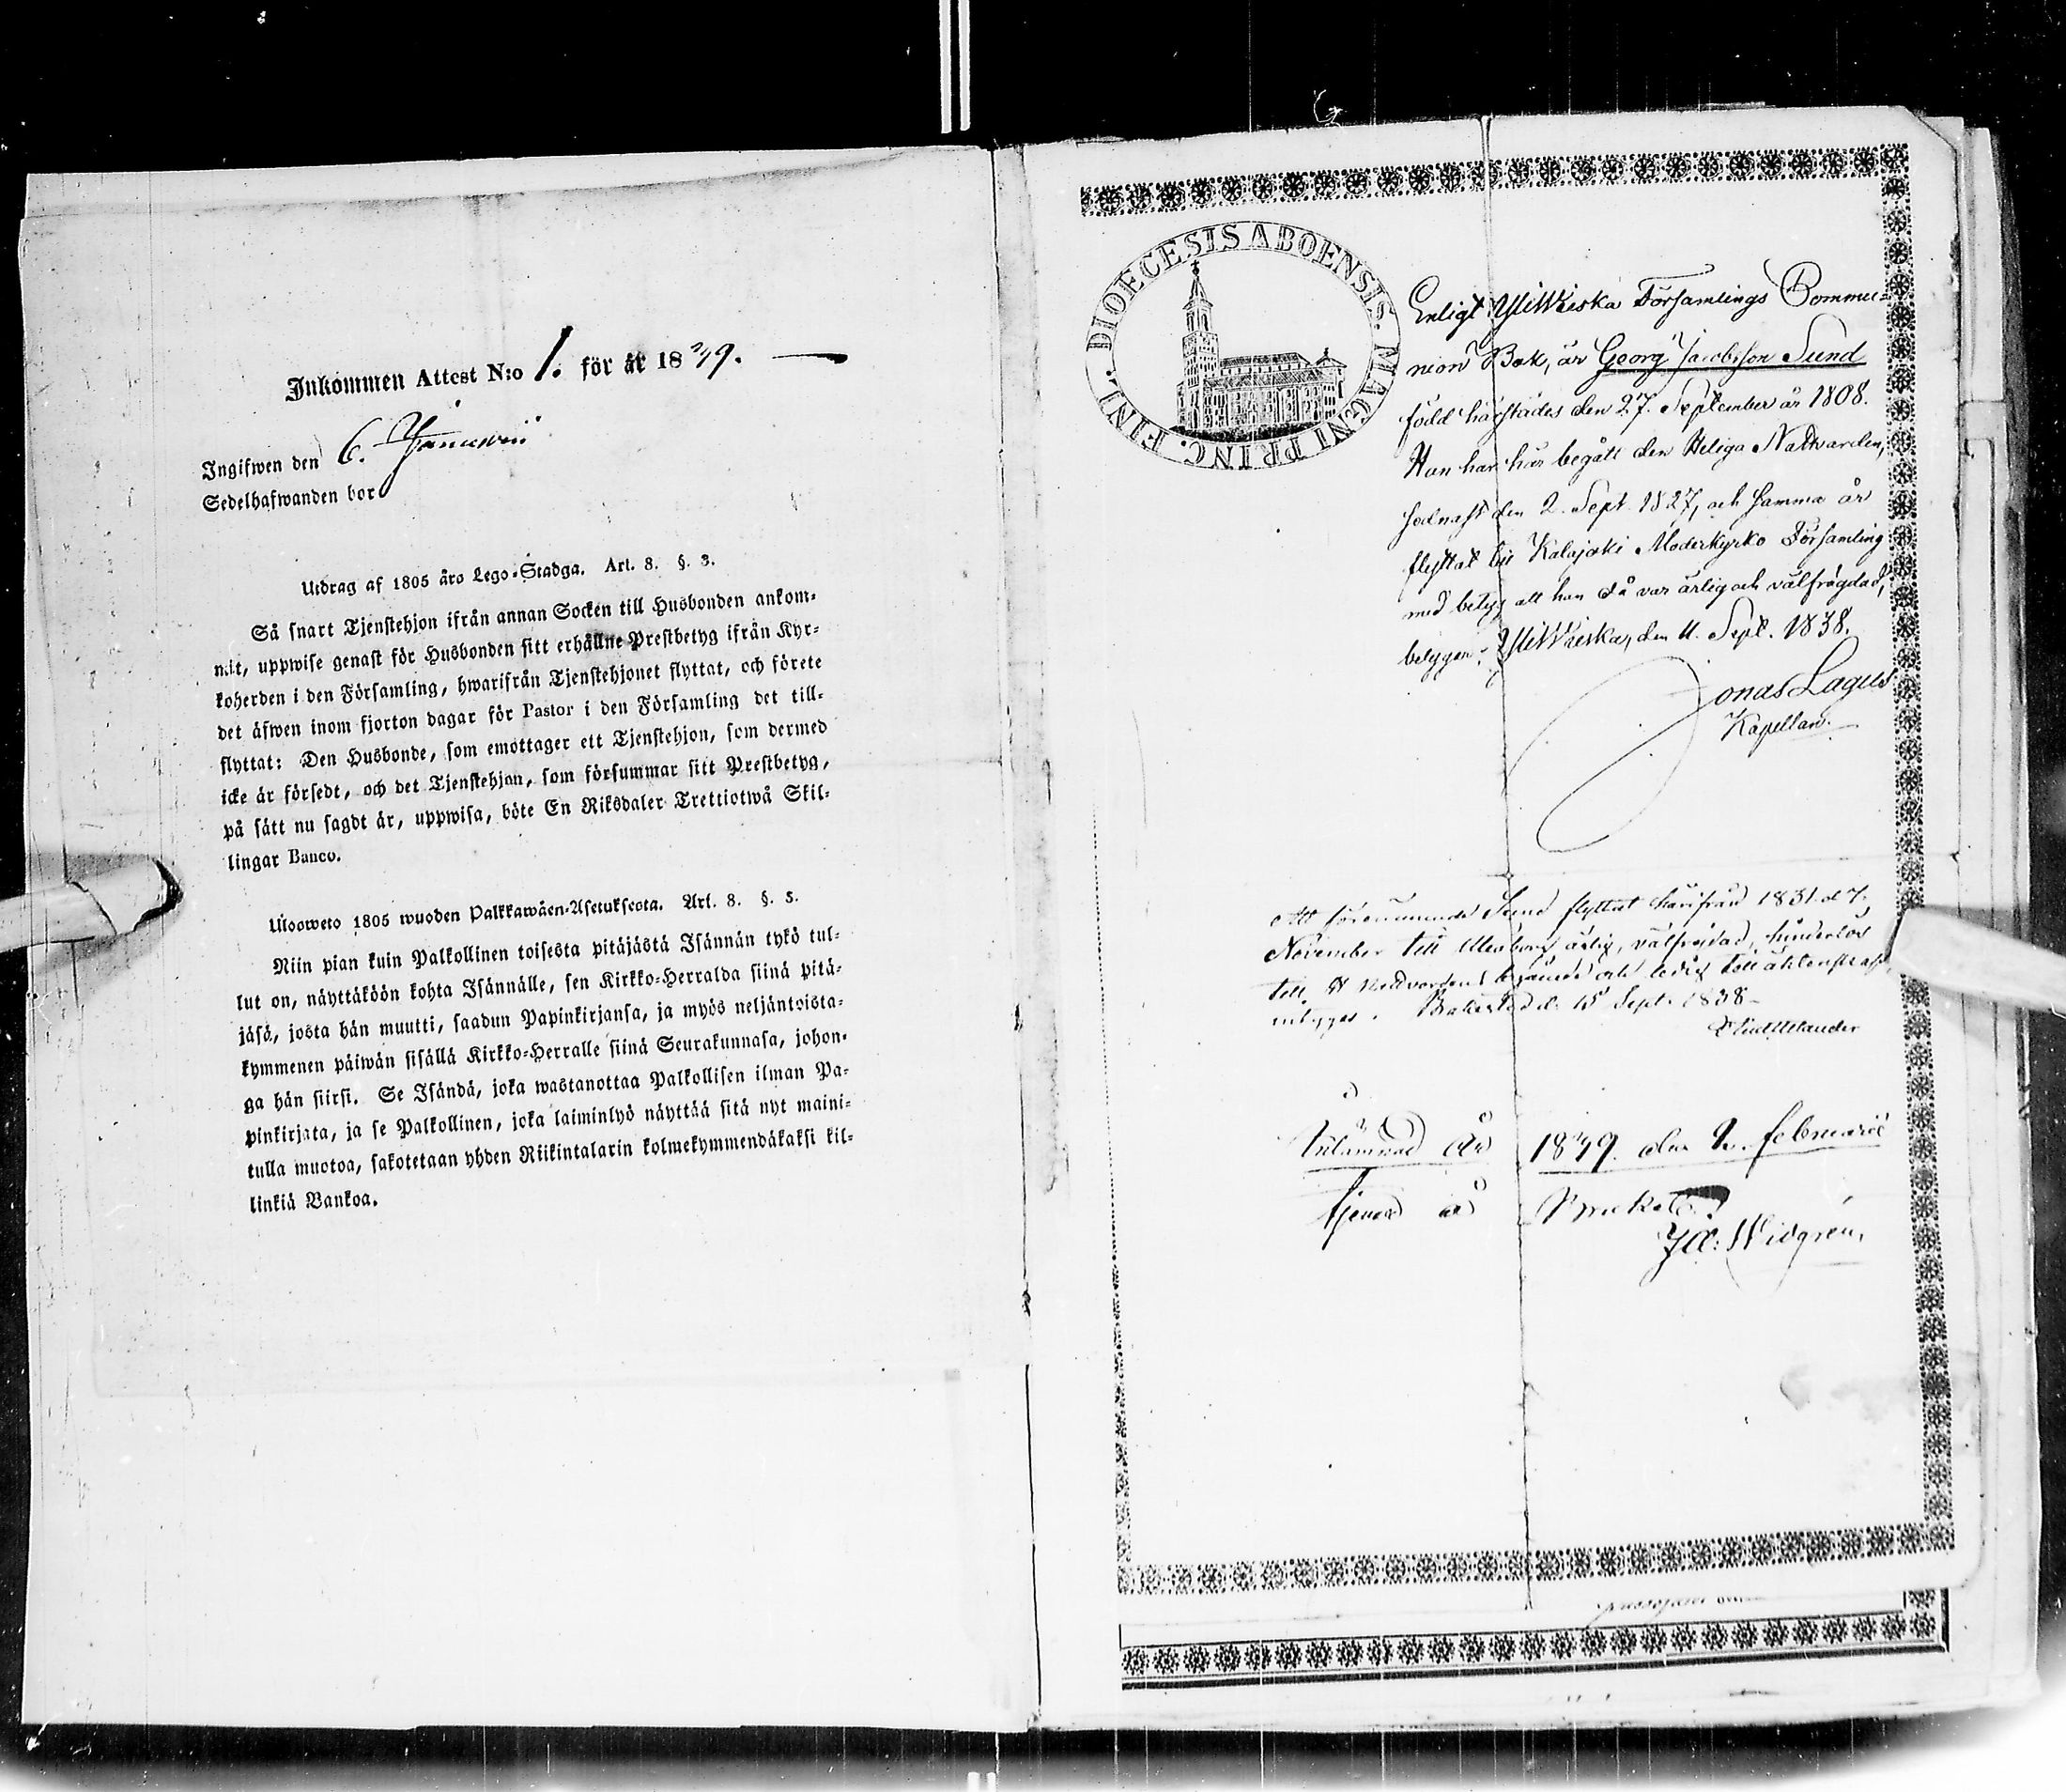 Inkommen Attest N:o 1. för år 1839.
Ingifwen den 6. Januarii
Sedelhafwanden bor
Utdrag af 1805 års Lego-Stadga. Art. 8. §. 3.
Så snart Tjenstehjon ifrån annan Socken till Husbonden ankom-
mit, uppwise genast för Husbonden sitt erhållne Prestbetyg ifrån Kyr-
koherden i den Församling, hwarifrån Tjenstehjonet flyttat, och förete
det äfwen inom fjorton dagar för Pastor i den Församling det till-
flyttat: Den Husbonde, som emottager ett Tjenstehjon, som dermed
icke är försedt, och det Tjenstehjon, som försummar sitt Prestbetyg,
på sätt nu sagdt är, uppwisa, böte En Riksdaler Trettiotwå Skil-
lingar Banco.
Ulosweto 1805 wuoden Palkkawäen-Asetuksesta. Art. 8. §. 3.
Niin pian kuin Palkollinen toisesta pitäjästä Isännän tykö tul-
lut on, näyttäköön kohta Isännälle, sen Kirkko-Herralda siinä pitä-
jäsä, josta hän muutti, saadun Papinkirjansa, ja myös neljäntoista-
kymmenen päiwän sisällä Kirkko-Herralle siinä Seurakunnasa, johon-
ga hän siirsi. Se Isändä, joka wastanottaa Palkollisen ilman Pa-
pinkirjata, ja se Palkollinen, joka laiminlyö näyttää sitä nyt maini-
tulla muotoa, sakotetaan yhden Riikintalarin kolmekymmendäkaksi kil-
linkiä Bankoa.
DIOECESIS ABOENSIS. MAGNI PRINC. FINL.
Enligt YliWieska Församlings Commu-
nion Bok, är Georg Jacobsson Sund
född härstädes den 27. September år 1808.
Han har här begått den Heliga Nattvarden,
sednast den 2. Sept. 1827, och samma år
flyttat till Kalajoki Moderkyrko Församling
med betyg att han då var ärlig och välfrägdad,
betygar; YliWieska, den 11. Sept. 1838.
Jonas Lagus
Kapellan.
Att förenämnde Sund flyttat härifrån 1831. d 7.
November till Uleåborg ärlig, välfrejdad, hinderlös
till H Nattvardens begående och ledig till äktenskap,
intygar. Brahestad d. 15 Sept. 1838-
Inlämnad År 1839. den 2. februarii
tjenar å Bruket